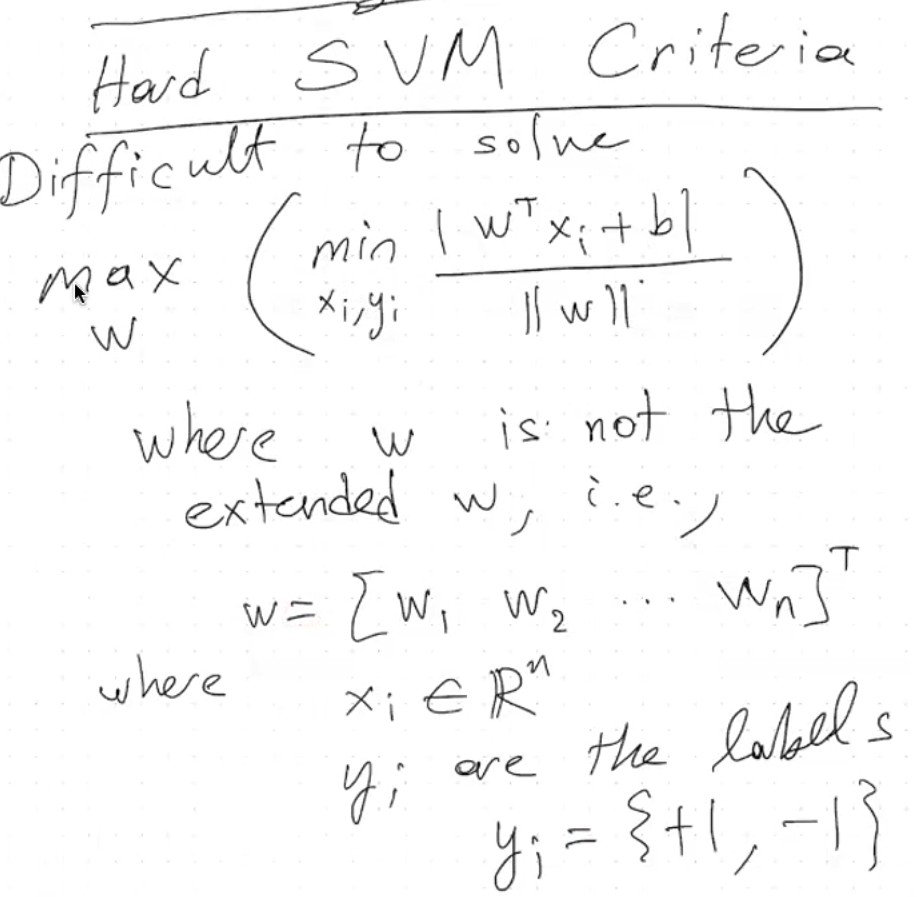 Hard SVM Criteria
Difficult to solve
max_w ( min_{x_i, y_i} |w^T x_i + b| / ||w|| )
where w is not the
extended w, i.e.,
w = [w_1 w_2 ... w_n]^T
where x_i ∈ R^n
y_i are the labels
y_i = {+1, -1}